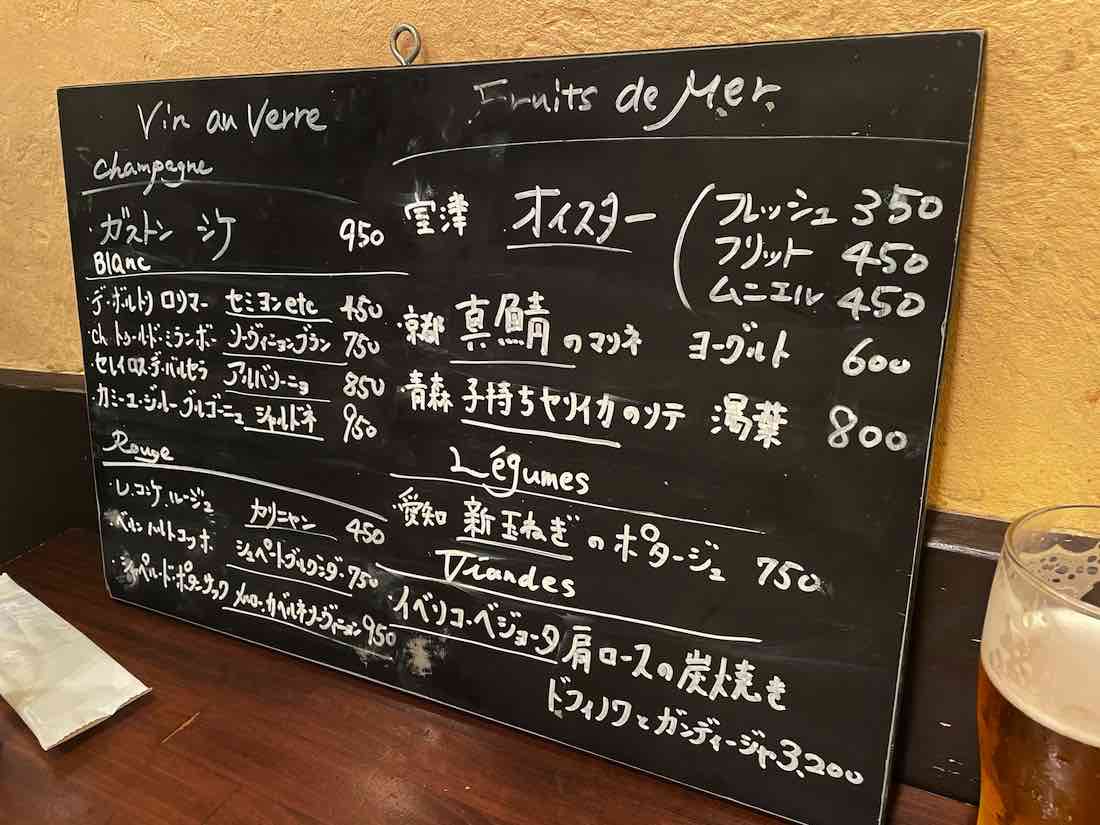 Vin au Verre
Champagne
・ガストン シケ 950
Blanc
・デ・ボルトリ ロリマー セミヨンetc 450
Ch トゥールド・ミランボー ソーヴィニョンブラン 750
・セレイロス・デ・バルセラ アルバリーニョ 850
・カミーユ・ジルー ブルゴーニュ シャルドネ 950
Rouge
・レ・コンケ ルージュ カリニャン 450
・ベルンハルトコッホ シュペートブルグンダー 750
・シャペルド・ポタンサック メルロー・カベルネソーヴィニョン 950
Fruits de Mer
室津 オイスター
フレッシュ 350
フリット 450
ムニエル 450
・京都 真鯖のマリネ ヨーグルト 600
・青森 子持ちヤリイカのソテ 湯葉 800
Légumes
・愛知 新玉ねぎのポタージュ 750
Viandes
・イベリコ・ベジョータ肩ロースの炭焼き
ドフィノワとガンディージャ 3,200